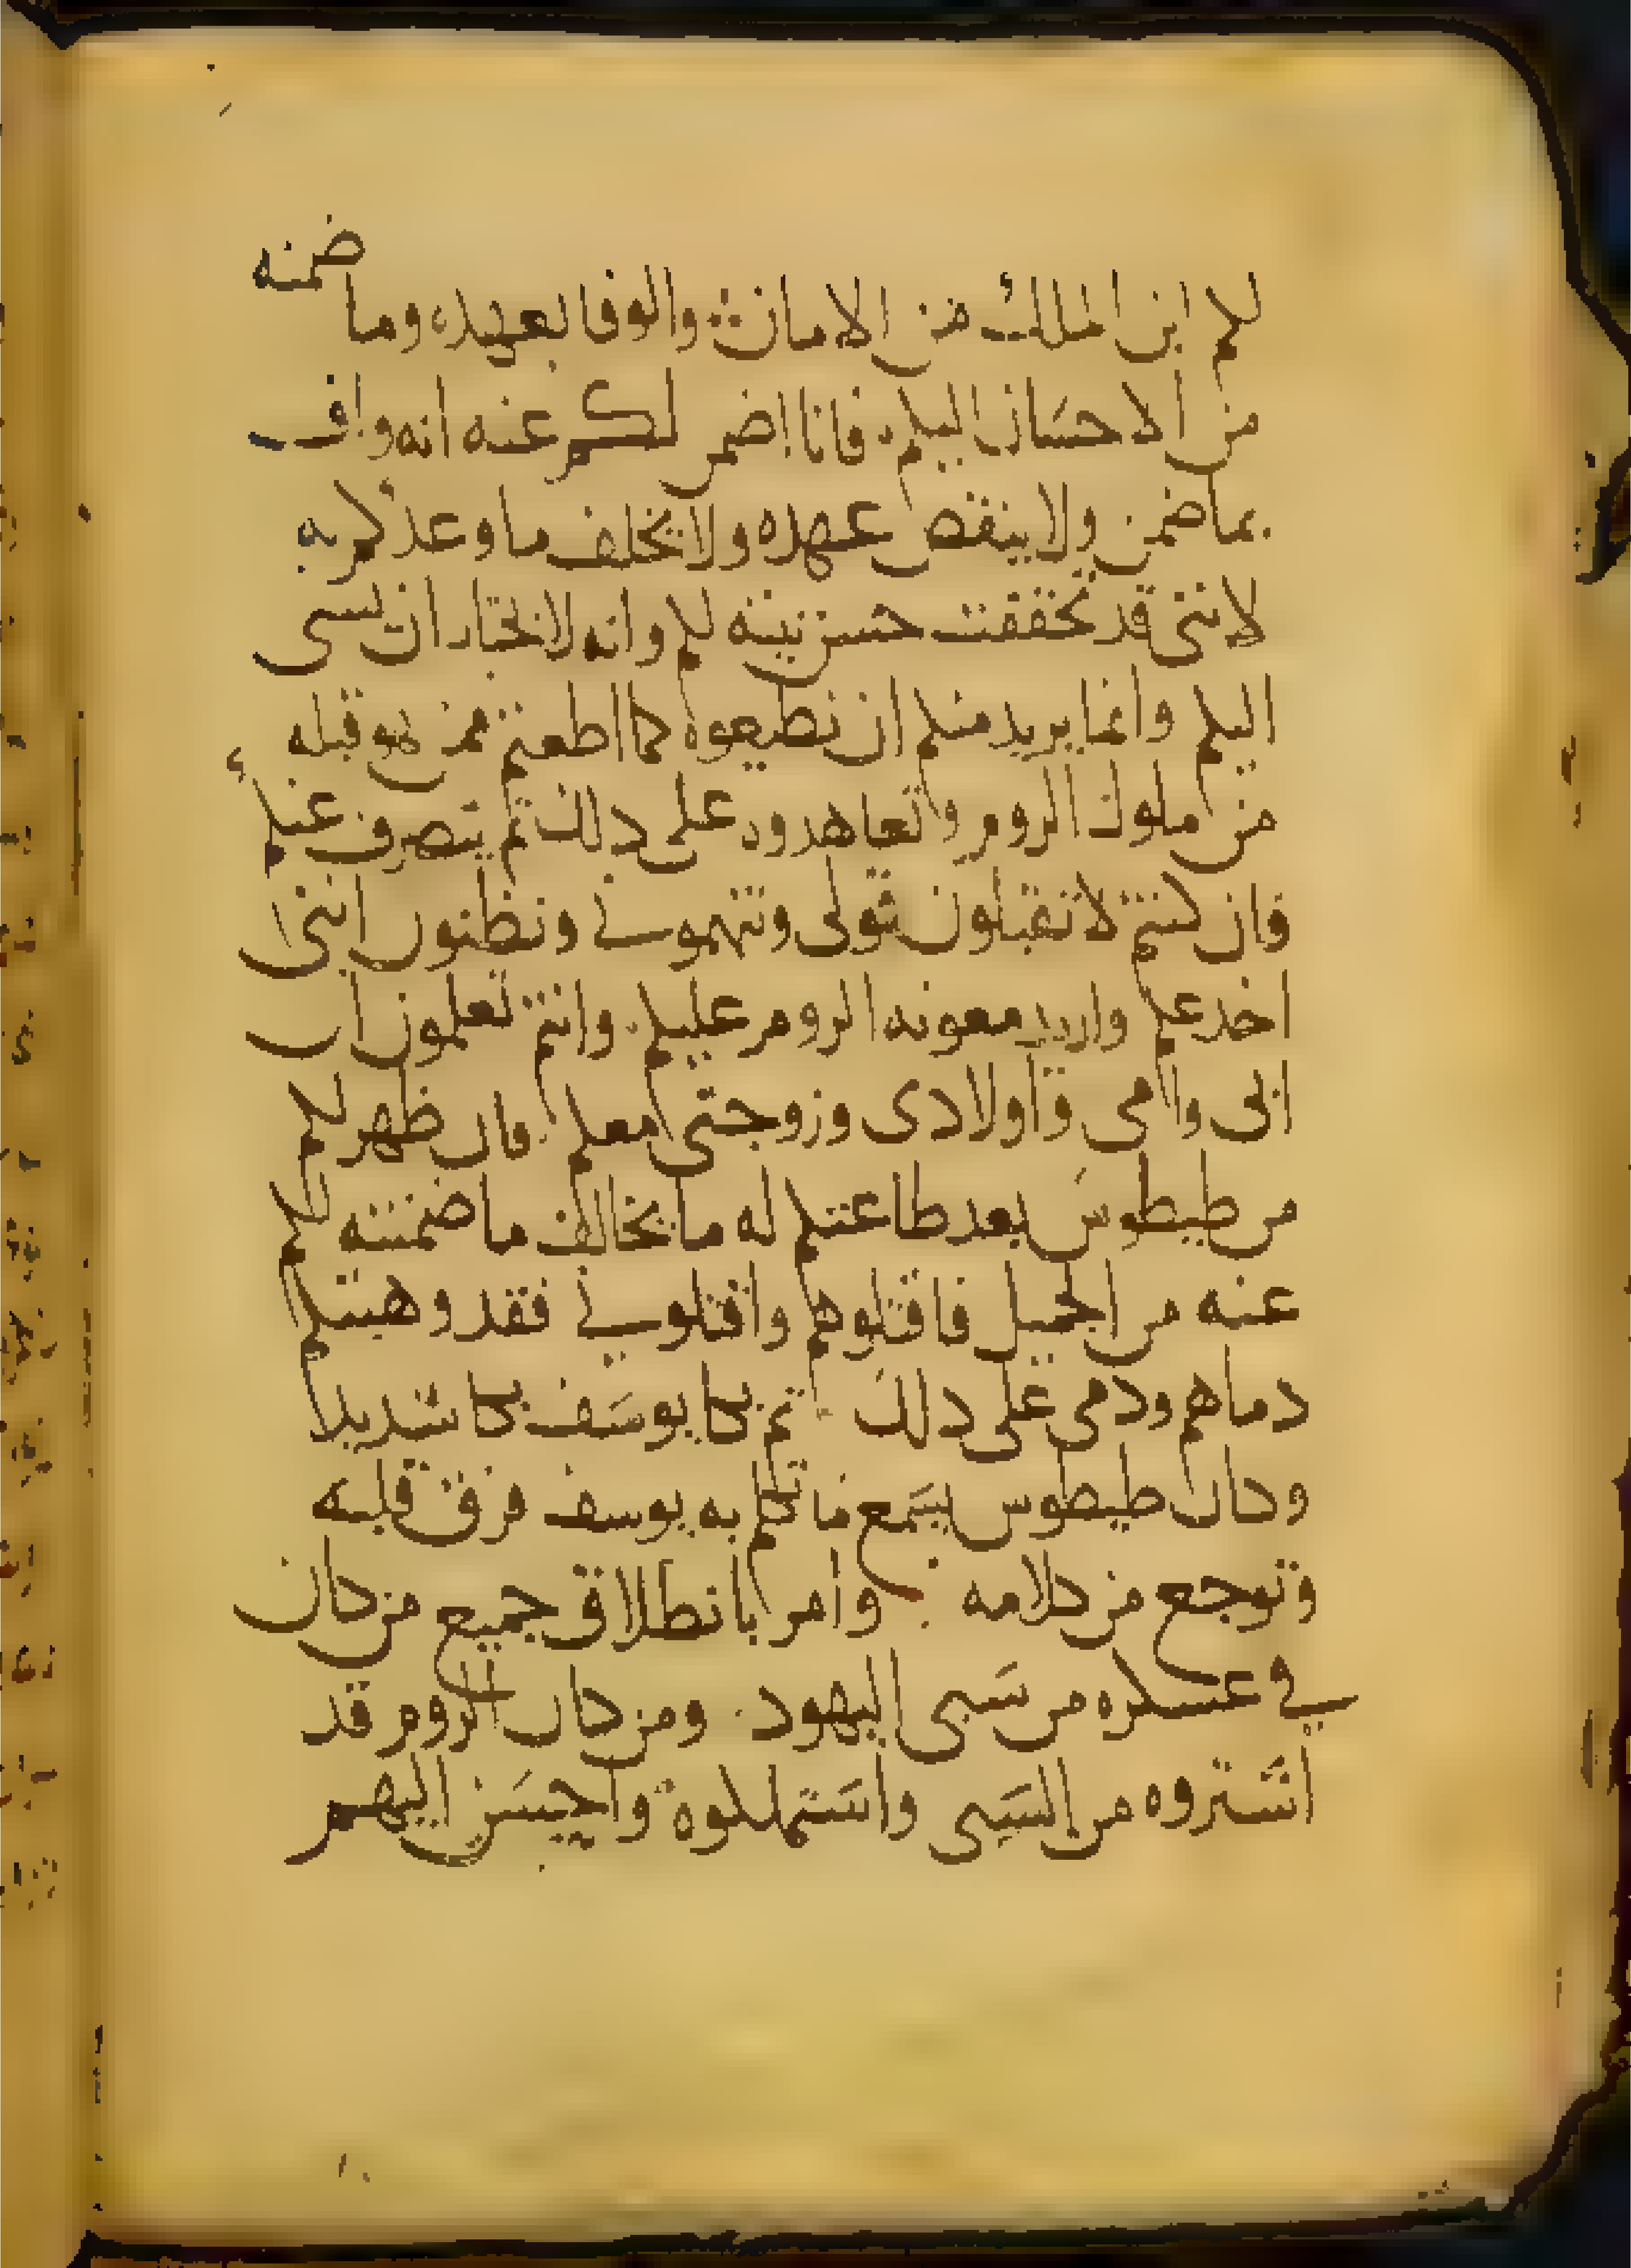 لكم ابن الملك من الامان والوفا بعهده وما ضمنه
من الاحسان اليكم فانا اضمن لكم عنه انه واف
بما ضمن ولا ينقض عهده ولا يخلف ما وعدكم به
لانني قد تحققت حسن نيته لكم وانه لا يختار ان يسى
اليكم وانما يريد منكم ان تطيعوه كما اطعتم من هو قبله
من ملوك الروم وتعاهدوه على دلك ثم ينصرف عنكم
فان كنتم لا تقبلون قولى وتتهموني وتظنون انني
اخدعكم واريد معونه الروم عليكم وانتم تعلمون ان
ابى وامى واولادى وزوجتى معكم فان ظهر لكم
من طيطوس بعد طاعتكم له ما يخالف ما ضمنته لكم
عنه من الجميل فاقتلوهم واقتلوني فقد وهبتكم
دماهم ودمى على دلك ثم بكا يوسف بكا شديدا
وكان طيطوس يسمع ما تكلم به يوسف فرق قلبه
وتوجع من كلامه وامر بانطلاق جميع من كان
في عسكره من سبى اليهود ومن كان الروم قد
اشتروه من السبى واستملكوه واحسن اليهم